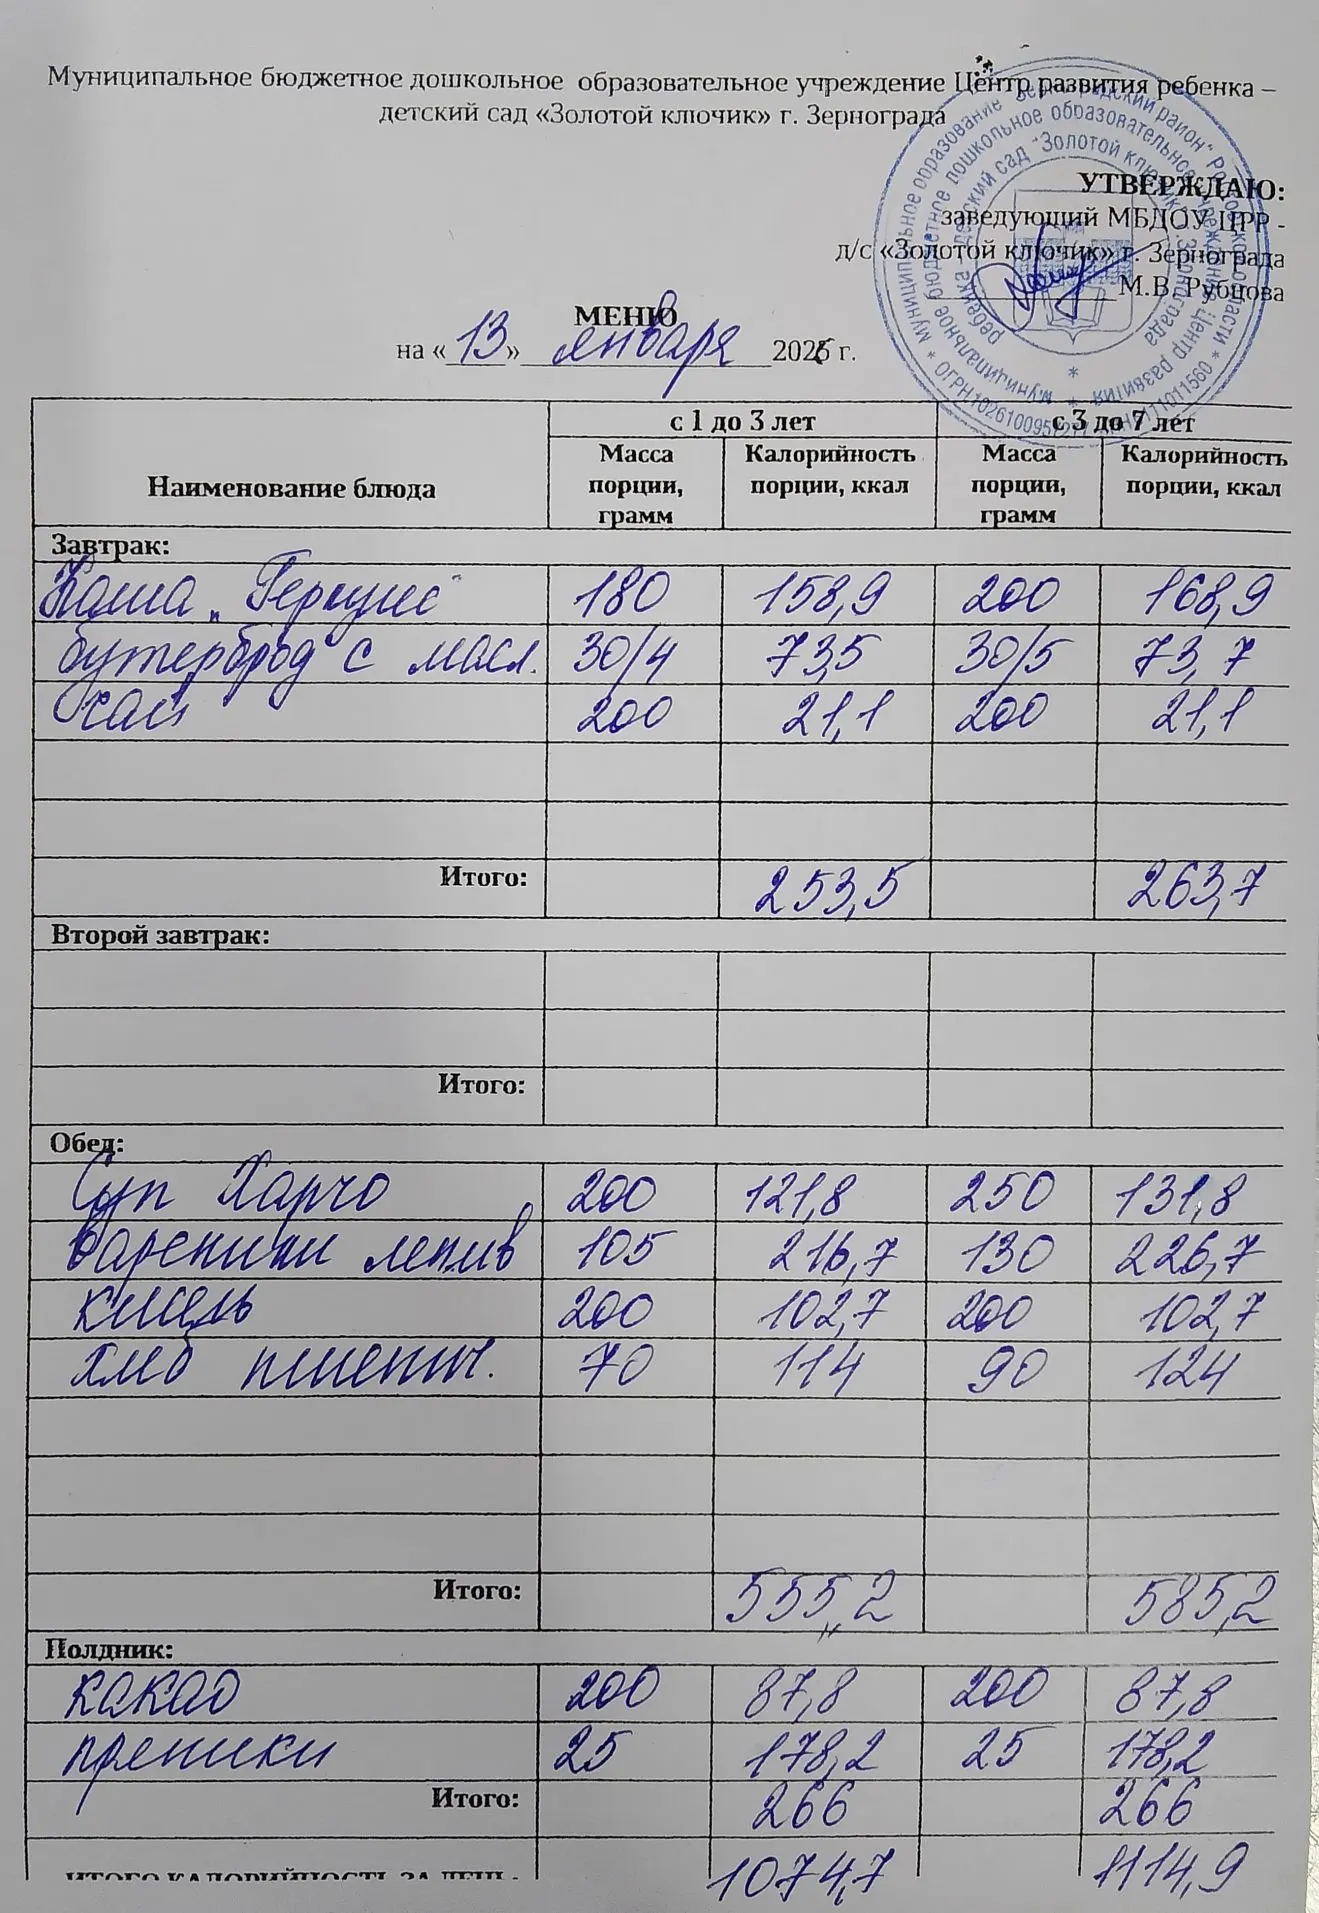 Муниципальное бюджетное дошкольное образовательное учреждение Центр развития ребенка –
детский сад «Золотой ключик» г. Зернограда
УТВЕРЖДАЮ:
заведующий МБДОУ ЦРР -
д/с «Золотой ключик» г. Зернограда
М.В. Рубцова
МЕНЮ
на «13» января 2026 г.
с 1 до 3 лет с 3 до 7 лет
Наименование блюда Масса порции, грамм Калорийность порции, ккал Масса порции, грамм Калорийность порции, ккал
Завтрак:
Каша „Геркулес" 180 158,9 200 168,9
бутерброд с масл. 30/4 73,5 30/5 73,7
чай 200 21,1 200 21,1
Итого: 253,5 263,7
Второй завтрак:
Итого:
Обед:
Суп Харчо 200 121,8 250 131,8
вареники ленив 105 216,7 130 226,7
кисель 200 102,7 200 102,7
хлеб пшенич. 70 114 90 124
Итого: 555,2 585,2
Полдник:
какао 200 87,8 200 87,8
пряники 25 178,2 25 178,2
Итого: 266 266
ИТОГО КАЛОРИЙНОСТЬ ЗА ДЕНЬ: 1074,7 1114,9